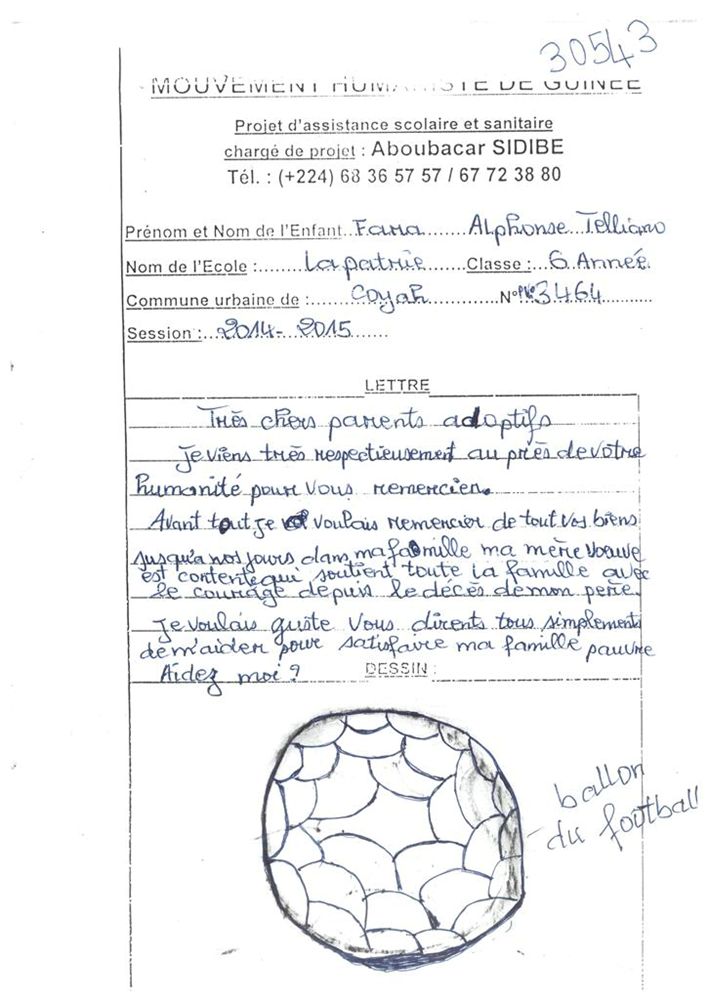 30543
MOUVEMENT HUMANISTE DE GUINEE
Projet d'assistance scolaire et sanitaire
chargé de projet : Aboubacar SIDIBE
Tél. : (+224) 68 36 57 57 / 67 72 38 80
Prénom et Nom de l'Enfant...Fara.......Alphonse...Telliano
Nom de l'Ecole :.......La patrie......Classe :...6 Année
Commune urbaine de :......Coyah..........N° 3464...........
Session :...2014-2015......
LETTRE
Très chers parents adoptifs
Je viens très respectieusement au près de votre
humanité pour vous remercier.
Avant tout je voulais remercier de tout vos biens
jusqu'a nos jours dans ma famille ma mère voeuve
est contente qui soutient toute la famille avec
le courage depuis le décès de mon père.
Je voulais guste vous dirents tous simplement
de m'aider pour satisfaire ma famille pauvre
Aidez moi ?
DESSIN :
ballon
du football